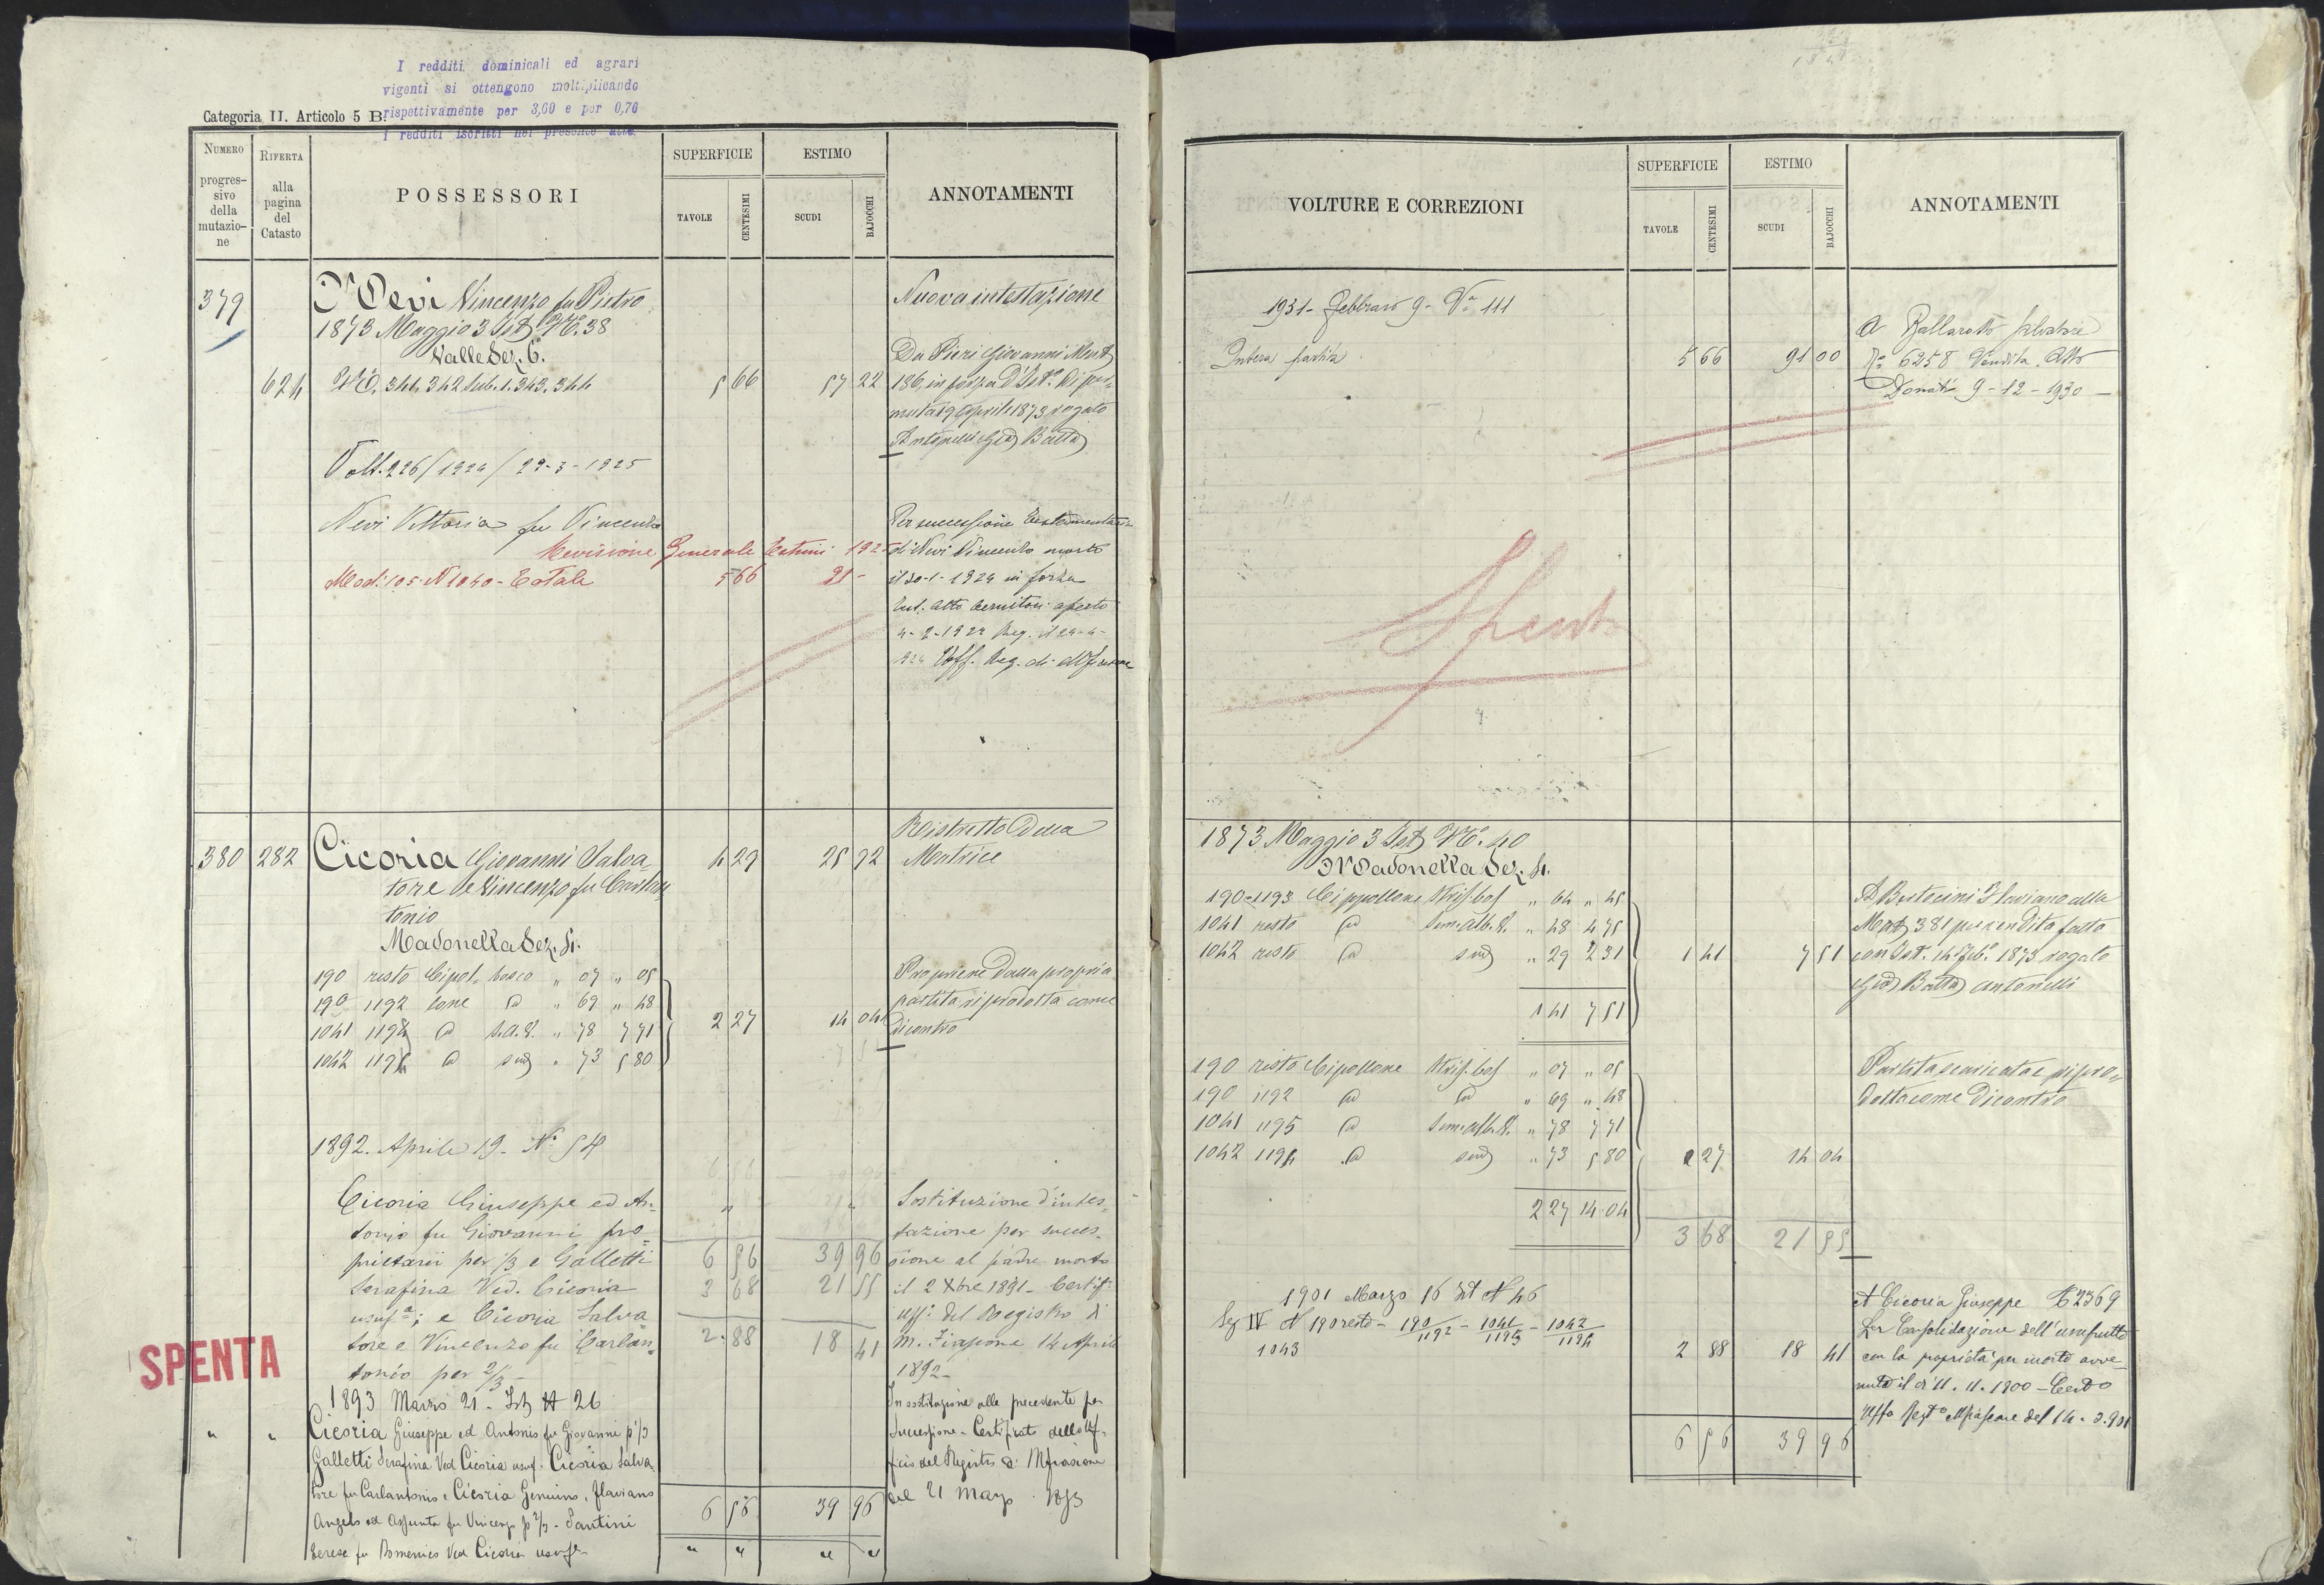 I redditi dominicali ed agrari
vigenti si ottengono moltiplicando
rispettivamente per 3,60 e per 0,76
i redditi iscritti nel presente atto.
Categoria II. Articolo 5 B.
NUMERO progres-sivo della mutazio-ne
RIFERTA alla pagina del Catasto
POSSESSORI
SUPERFICIE
TAVOLE
CENTESIMI
ESTIMO
SCUDI
BAJOCCHI
ANNOTAMENTI
379
Nevi Vincenzo fu Pietro
1873 Maggio 3 Ist N.o 38
Valle Sez. 6.
624 N.o 341. 342 sub. 1. 343. 344 5 66 57 22
Nuova intestazione
Da Pieri Giovanni Mut
186, in forza d'Ist.o di per-
muta 19 Aprile 1873 rogato
Antonelli Gio Batta
Volt. 226/1924/29-3-1925
Nevi Vittoria fu Vincenzo
Revisione Generale Estimi 192
Mod. 105. N 1040 - Totale 5 66 91 -
Per successione testamentaria
di Nevi Vincenzo morto
il 30-1-1924 in forza
4-2-1924 Reg. il 24-4-
924 Uff. Reg. di M/fiascone
380 282 Cicoria Giovanni Salva
tore e Vincenzo fu Carlan
tonio
4 29 25 92
Ristretto della
Matrice
Madonella Sez. 4.
190 resto Cipol- bosco " 07 " 05
190 1192 lone d " 69 " 48
1041 1195 d s.a.v. " 78 7 71
1042 1194 d sud " 73 5 80
2 27 14 04
Proviene dalla propria
partita riprodotta come
dicontro
1892. Aprile 19. N.o 54
Cicoria Giuseppe ed An-
tonio fu Giovanni pro-
prietarii per 1/3 e Galletti
Serafina Ved. Cicoria
usuf.a; e Cicoria Salva
tore e Vincenzo fu Carlan-
tonio per 2/3 -
" "
6 56 39 96
3 68 21 55
2. 88 18 41
Sostituzione d'intes-
tazione per succes-
sione al padre morto
il 2 Xbre 1891 - Certif.
Uff.o del Registro di
M. Fiascone 14 Aprile
1892 -
SPENTA
1893 Marzo 21 - Ist N 26
" " Cicoria Giuseppe ed Antonio fu Giovanni p 1/3
Galletti Serafina Ved Cicoria usuf. Cicoria Salva
tore fu Carlantonio e Cicoria Genuino, Flaviano
Angelo ed Assunta fu Vincenzo p 2/3 - Santini
Terese fu Domenico Ved Cicoria usuf-
6 56 39 96
" " " "
In sostituzione alla precedente per
Successione - Certificato dell'Uf-
ficio del Registro di Mfiascone
del 21 Marzo 1893
VOLTURE E CORREZIONI
SUPERFICIE
TAVOLE
CENTESIMI
ESTIMO
SCUDI
BAJOCCHI
ANNOTAMENTI
1931 - Febbraio 9 - N.o 111
Intera partita 5 66 91 00
A Ballarotto Salvatore
N.o 6258 Vendita Atto
Donati 9-12-1930 -
Spenta
1873 Maggio 3 Ist N.o 40
Madonella Sez. 4.
190-1193 Cippollone Kris. bos " 64 " 45
1041 resto d Sem. Alb. V. " 48 4 75
1042 resto d sud " 29 2 31
1 41 7 51
1 41 7 51
A Bertocini Flaviano alla
Mat 381 per vendita fatta
con Ist. 14 Feb.o 1873 rogato
Gio Batta Antonelli
190 resto Cipollone Kris. bos " 07 " 05
190 1192 d d " 69 " 48
1041 1195 d Sem. Alb. V. " 78 7 71
1042 1194 d sud " 73 5 80
2 27 14 04
2 27 14 04
Partita scaricata e ripro-
dotta come dicontro
3 68 21 55
1901 Marzo 16 Ist N 46
Sez IV N 190 resto - 190/1192 - 1041/1195 - 1042/1194
1043
2 88 18 41
A Cicoria Giuseppe N 2369
Per Consolidazione dell'usufrutto
con la proprietà per morte avve-
nuta il dì 11. 11. 1900 - Certo
Uffo Regto Mfiascone del 14. 3. 901
6 56 39 96